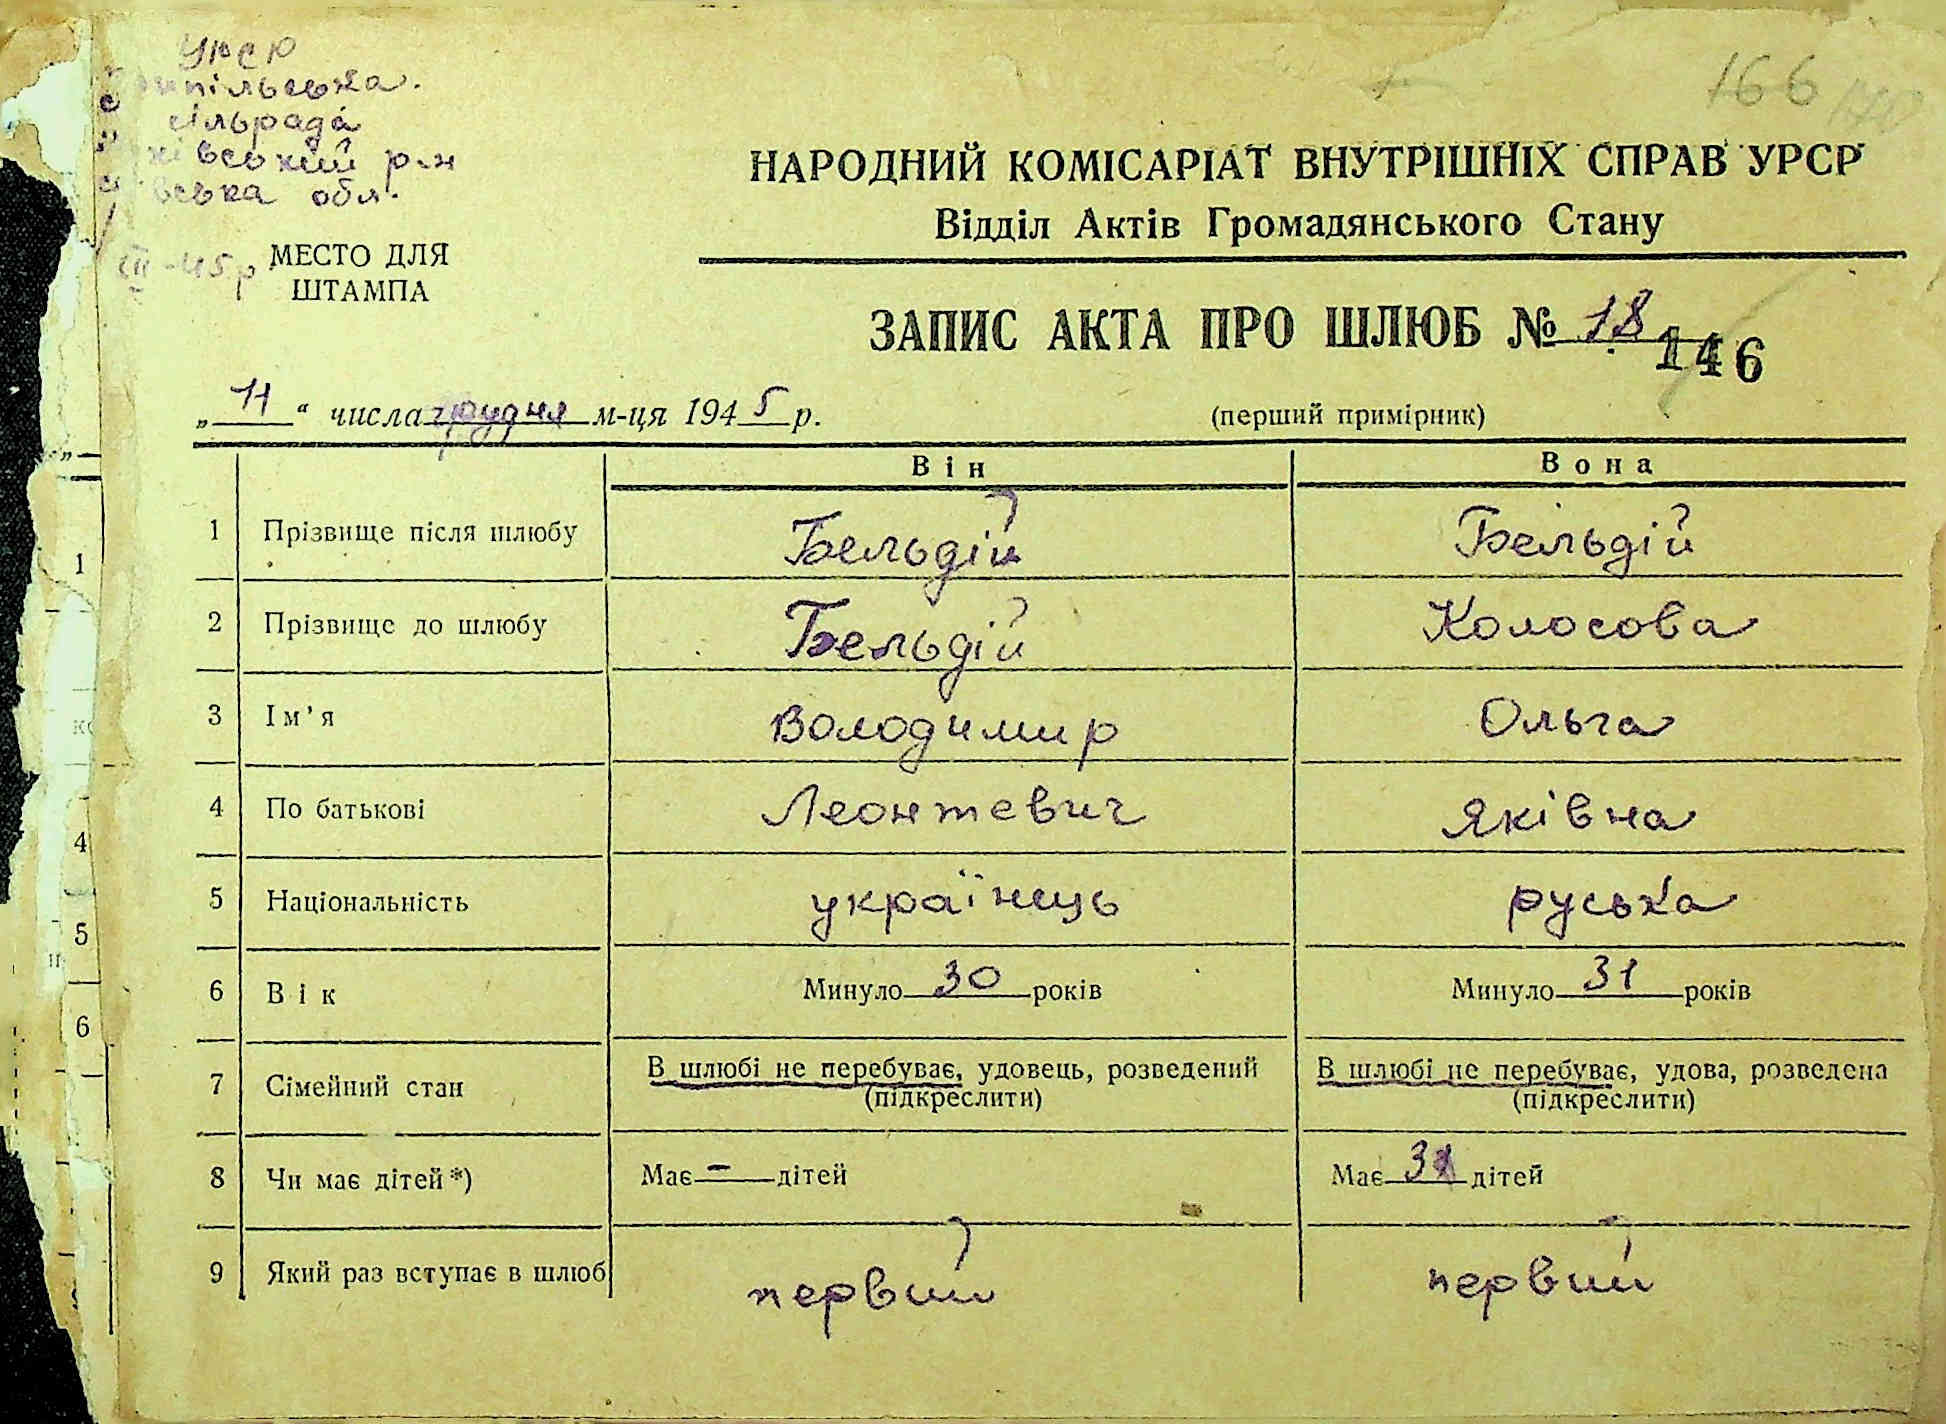 УРСР
сільрада
р-н
обл.
МЕСТО ДЛЯ
ШТАМПА
166
НАРОДНИЙ КОМІСАРІАТ ВНУТРІШНІХ СПРАВ УРСР
Відділ Актів Громадянського Стану
ЗАПИС АКТА ПРО ШЛЮБ № 18
146
„ 11 “ числа грудня м-ця 1945 р.
(перший примірник)
Він Вона
1 Прізвище після шлюбу Бельдій Бельдій
2 Прізвище до шлюбу Бельдій Колосова
3 Ім'я Володимир Ольга
4 По батькові Леонтевич Яківна
5 Національність українець руська
6 Вік Минуло 30 років Минуло 31 років
7 Сімейний стан В шлюбі не перебуває, удовець, розведений В шлюбі не перебуває, удова, розведена
(підкреслити) (підкреслити)
8 Чи має дітей*) Має - дітей Має дітей
9 Який раз вступає в шлюб первий первий
1
4
5
6